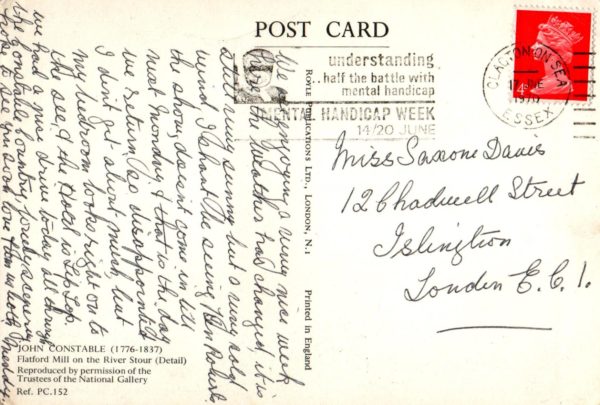 POST CARD
understanding
..half the battle with
mental handicap
MENTAL HANDICAP WEEK
14/20 JUNE
CLACTON-ON-SEA
ESSEX
1970
4d
We are enjoying a very nice week
here, the weather has changed, it is
still very sunny but a very cold
wind. I shan't be seeing Ken
the show doesn't come in till
next Monday & that is the day
we return, so disappointed
I don't get about much, but
my bedroom looks right on to
the sea & the Hotel is
we had a nice drive today all through
the Constable Country, lovely scenery
hope to see you soon love from us both
ROYLE PUBLICATIONS LTD., LONDON, N.1
Printed in England
Miss Saxone Davis
12 Chadwell Street
Islington
London E.C.1.
JOHN CONSTABLE (1776-1837)
Flatford Mill on the River Stour (Detail)
Reproduced by permission of the
Trustees of the National Gallery
Ref. PC.152